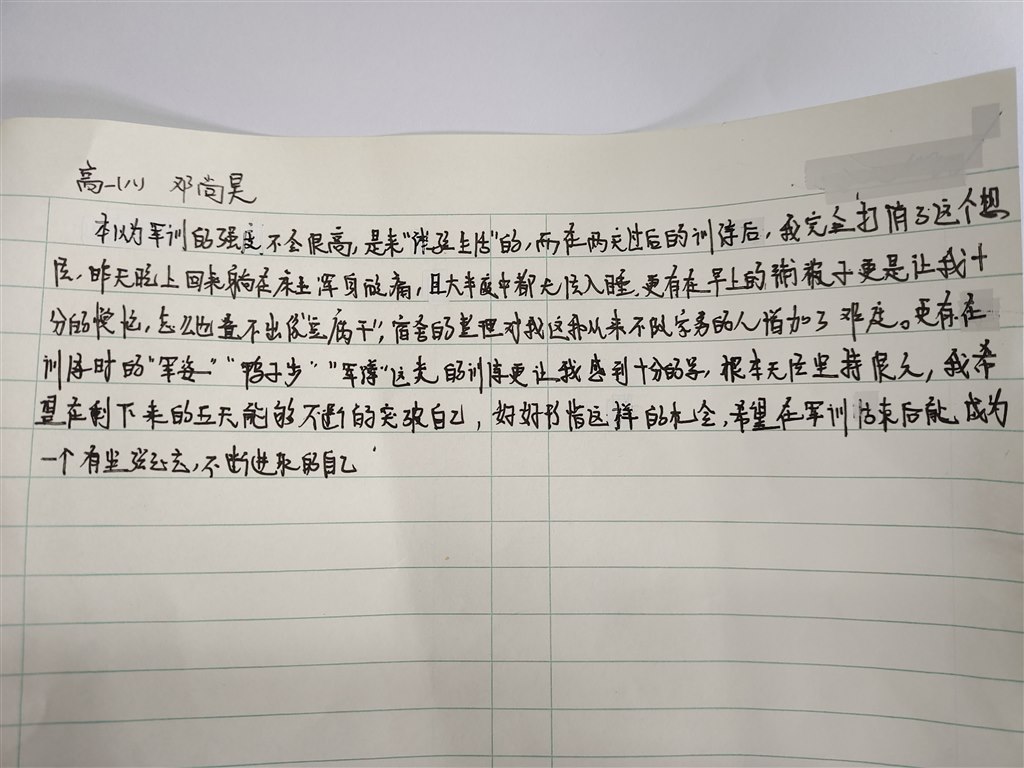 高一(八) 邓尚昊
本以为军训的强度不会很高,是来"体验生活"的,而在两天过后的训练后,我完全打消了这个想
法,昨天晚上回来躺在床上浑身酸痛,且大半夜中都无法入睡,更有在早上的叠被子更是让我十
分的懊恼,怎么也叠不出像"豆腐干",宿舍的整理对我这种从来不做家务的人增加了难度。更存在
训练时的"军姿""鸭子步""军蹲"这类的训练更让我感到十分的累,根本无法坚持很久,我希
望在剩下来的五天能够不断的突破自己,好好珍惜这样的机会,希望在军训结束后能成为
一个有坚强意志,不断进取的自己